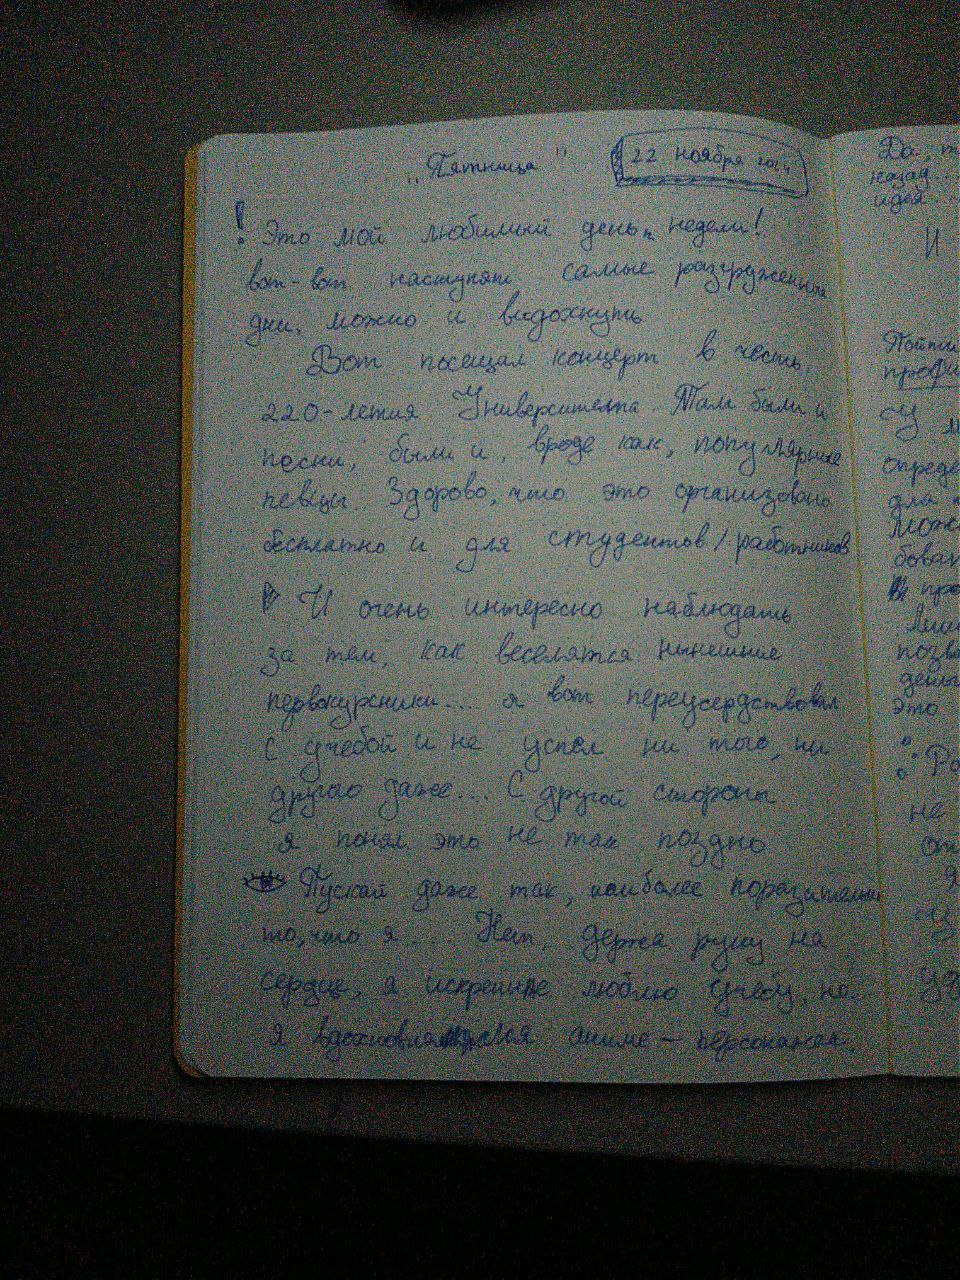 „Пятница"
22 ноября 2024
! Это мой любимый день недели!
вот-вот наступят самые разгруженные
дни, можно и выдохнуть
Вот посещал концерт в честь
220-летия Университета. Там были и
песни, были и, вроде как, популярные
певцы. Здорово, что это организовано
бесплатно и для студентов/работников
И очень интересно наблюдать
за тем, как веселятся нынешние
первокурсники... я вот переусердствовал
с учебой и не успел ни того, ни
другого даже... С другой стороны
я понял это не так поздно
Пускай даже так, наиболее поразительно
то, что я .... Нет, держа руку на
сердце, я искренне люблю учебу, но
я аниме - персонажем.
Да,
назад...
идея
И
У
для
это
не
я